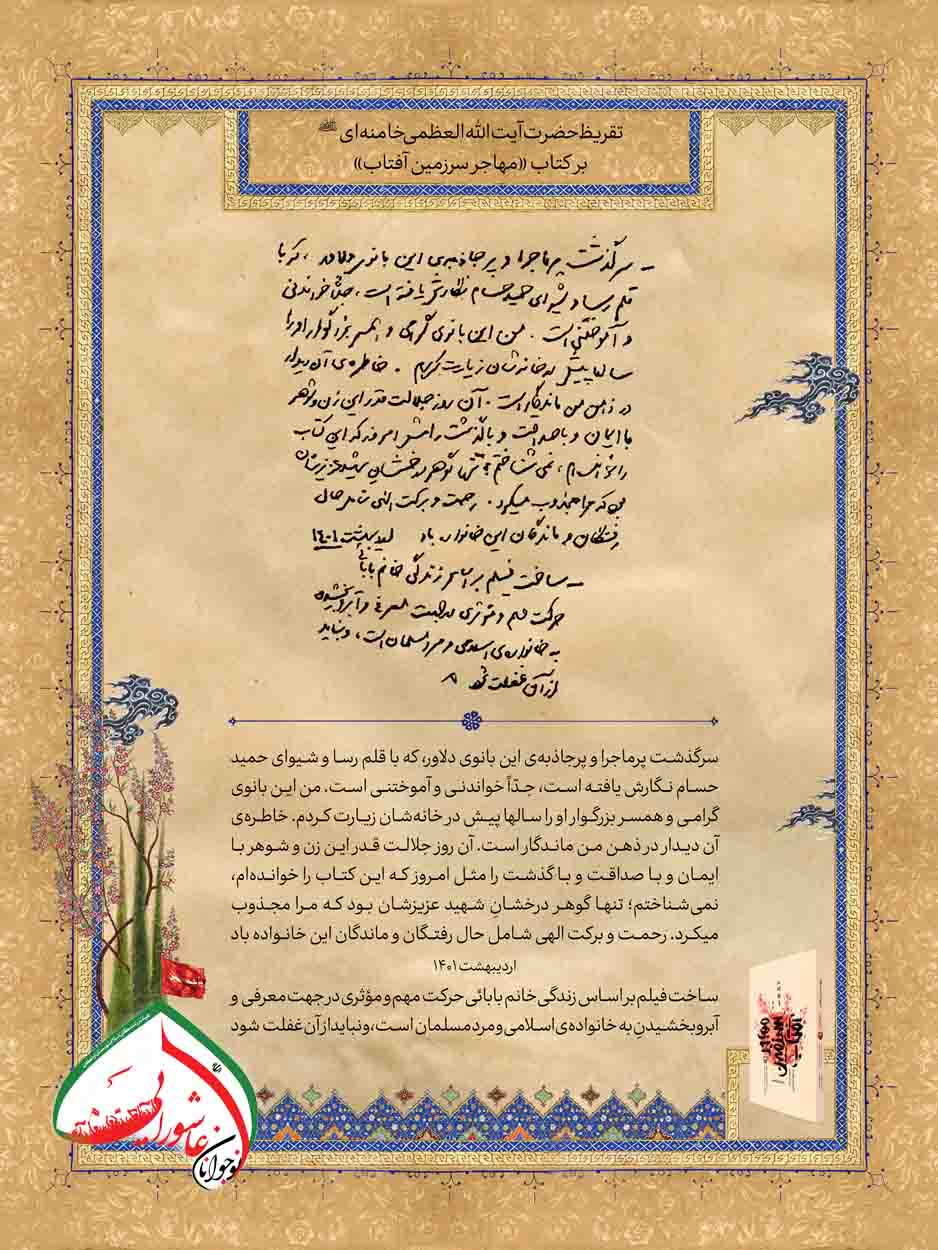 تقریظ حضرت آیت الله العظمی خامنه‌ای
بر کتاب «مهاجر سرزمین آفتاب»
ـ سرگذشت پرماجرا و پرجاذبه‌ی این بانوی دلاور، که با
قلم رسا و شیوای حمید حسام نگارش یافته است، جدّاً خواندنی
و آموختنی است. من این بانوی گرامی و همسر بزرگوار او را
سالها پیش در خانه‌شان زیارت کردم. خاطره‌ی آن دیدار
در ذهن من ماندگار است. آن روز جلالت قدر این زن و شوهر
با ایمان و با صداقت و با گذشت را مثل امروز که این کتاب
را خوانده‌ام، نمی‌شناختم؛ تنها گوهر درخشان شهید عزیزشان
بود که مرا مجذوب میکرد. رحمت و برکت الهی شامل حال
رفتگان و ماندگان این خانواده باد اردیبهشت ۱۴۰۱
ـ ساخت فیلم بر اساس زندگی خانم بابائی
حرکت مهم و مؤثری در جهت معرفی و آبرو بخشیدن
به خانواده‌ی اسلامی و مرد مسلمان است، و نباید
از آن غفلت شود
سرگذشت پرماجرا و پرجاذبه‌ی این بانوی دلاور، که با قلم رسا و شیوای حمید
حسام نگارش یافته است، جدّاً خواندنی و آموختنی است. من این بانوی
گرامی و همسر بزرگوار او را سالها پیش در خانه‌شان زیارت کردم. خاطره‌ی
آن دیدار در ذهن من ماندگار است. آن روز جلالت قدر این زن و شوهر با
ایمان و با صداقت و با گذشت را مثل امروز که این کتاب را خوانده‌ام،
نمی‌شناختم؛ تنها گوهر درخشانِ شهید عزیزشان بود که مرا مجذوب
میکرد. رحمت و برکت الهی شامل حال رفتگان و ماندگان این خانواده باد
اردیبهشت ۱۴۰۱
ساخت فیلم بر اساس زندگی خانم بابائی حرکت مهم و مؤثری در جهت معرفی و
آبرو بخشیدنِ به خانواده‌ی اسلامی و مرد مسلمان است، و نباید از آن غفلت شود
مهاجر سرزمین آفتاب
نوجوانان عاشورایی